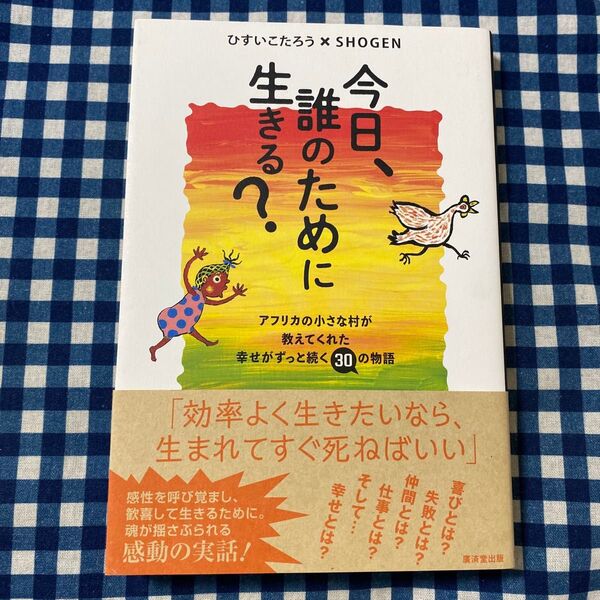 ひすいこたろう×SHOGEN
今日、
誰のために
生きる?
アフリカの小さな村が
教えてくれた
幸せがずっと続く30の物語
「効率よく生きたいなら、
生まれてすぐ死ねばいい」
感性を呼び覚まし、
歓喜して生きるために。
魂が揺さぶられる
感動の実話!
喜びとは?
失敗とは?
仲間とは?
仕事とは?
そして…
幸せとは?
廣済堂出版